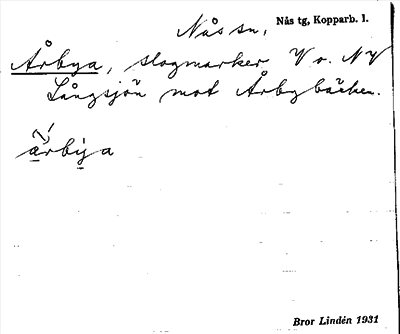 Nås sn, Nås tg, Kopparb. l.
Årbya, slogmarker V o. NV
Långsjön mot Årbybäcken.
ärbiya
Bror Lindén 1931